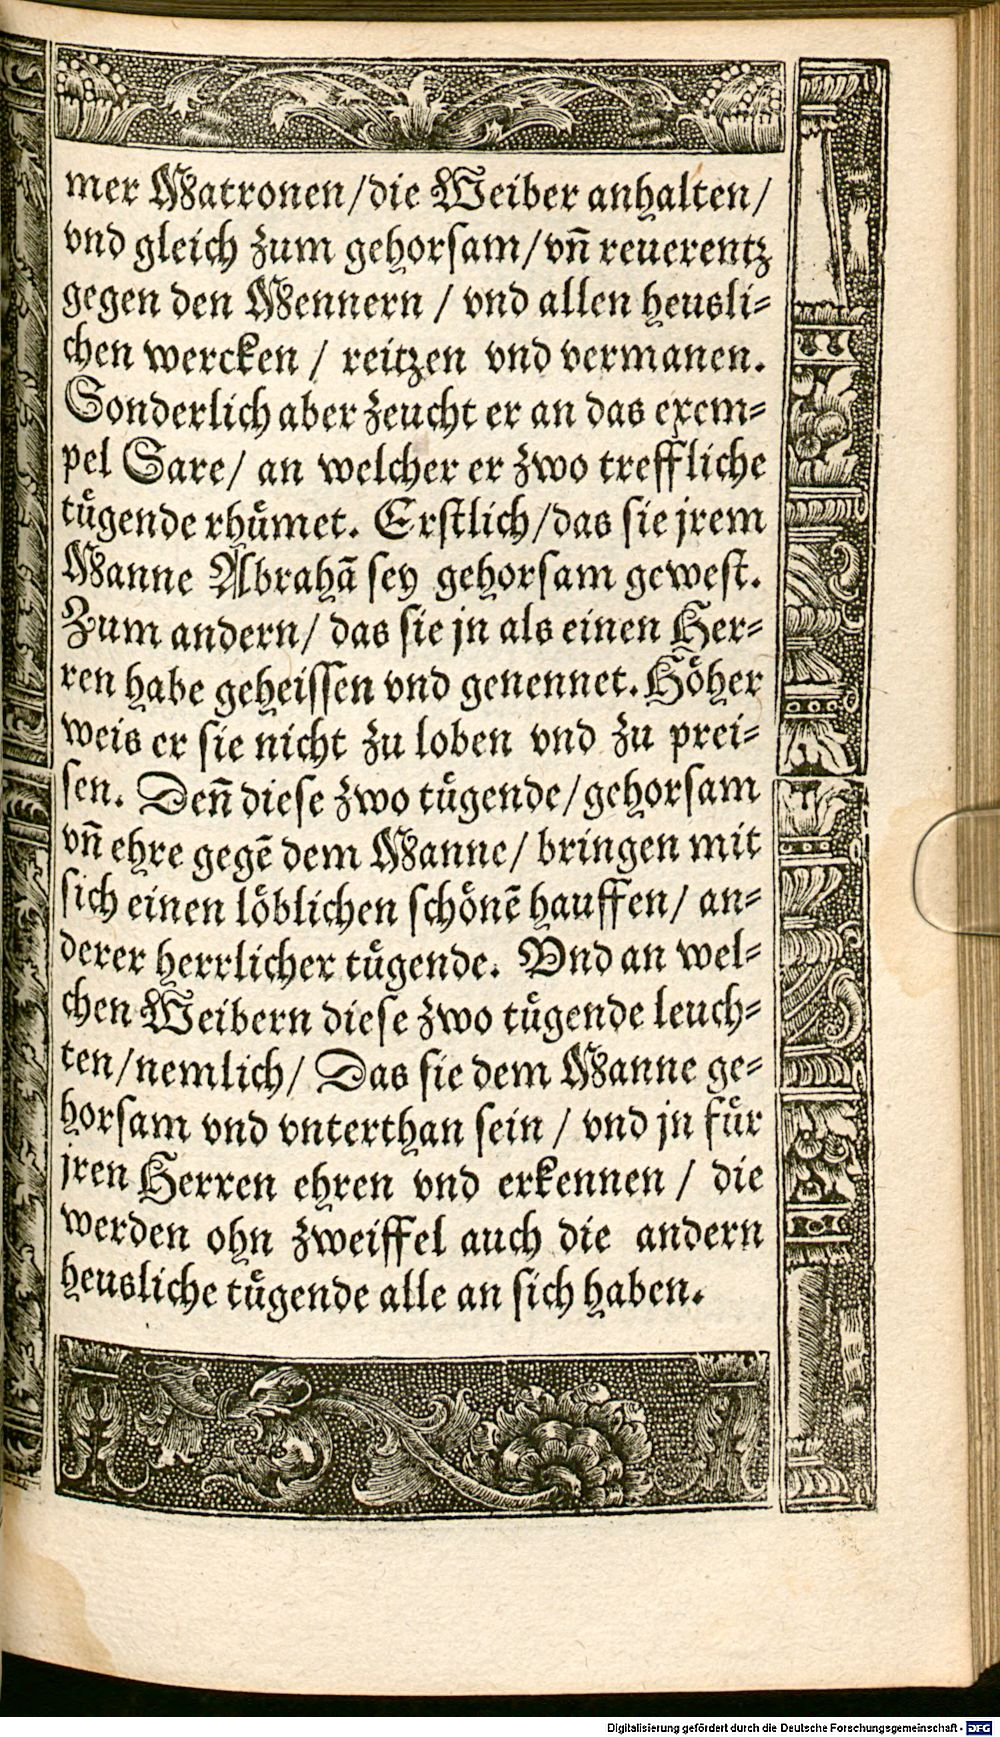 mer Matronen/die Weiber anhalten/
vnd gleich zum gehorsam/vn̄ reuerentz
gegen den Mennern / vnd allen heusli-
chen wercken / reitzen vnd vermanen.
Sonderlich aber zeucht er an das exem-
pel Sare/ an welcher er zwo treffliche
tuͤgende rhuͤmet. Erstlich/das sie jrem
Manne Abrahā sey gehorsam gewest.
Zum andern/ das sie jn als einen Her-
ren habe geheissen vnd genennet. Hoͤher
weis er sie nicht zu loben vnd zu prei-
sen. Den̄ diese zwo tuͤgende/gehorsam
vn̄ ehre gegē dem Manne/ bringen mit
sich einen loͤblichen schoͤnē hauffen/ an-
derer herrlicher tuͤgende. Vnd an wel-
chen Weibern diese zwo tuͤgende leuch-
ten/nemlich/ Das sie dem Manne ge-
horsam vnd vnterthan sein / vnd jn fuͤr
jren Herren ehren vnd erkennen / die
werden ohn zweiffel auch die andern
heusliche tuͤgende alle an sich haben.
Digitalisierung gefördert durch die Deutsche Forschungsgemeinschaft - DFG